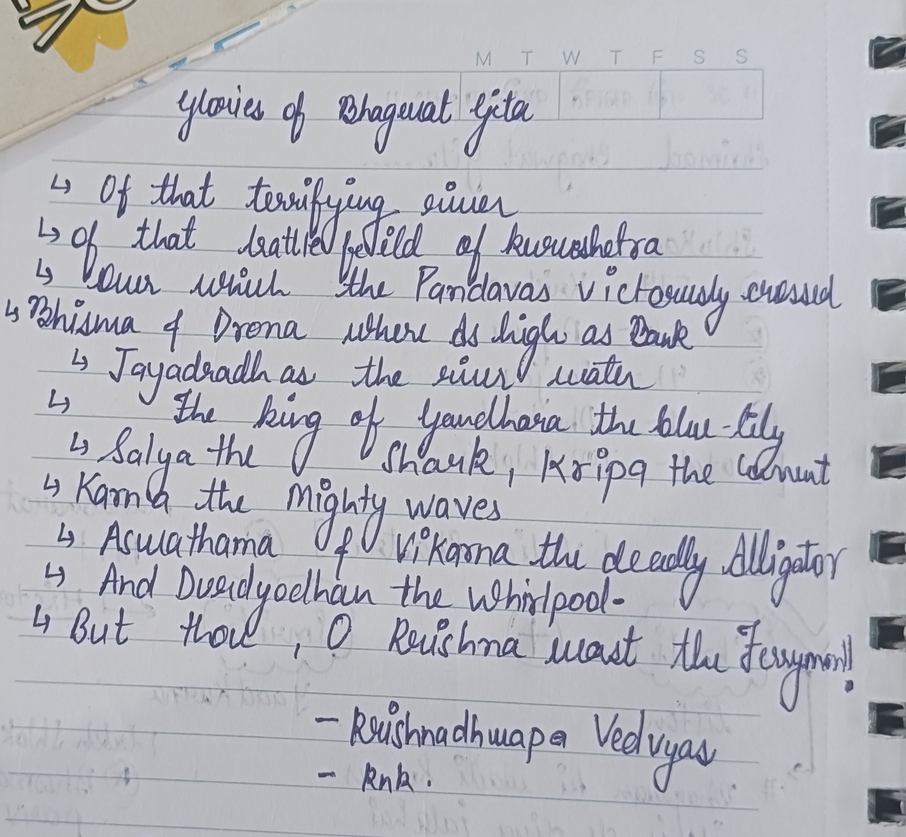 M T W T F S S
Glories of Bhagwat Gita
↳ Of that terrifying river
↳ Of that battlefeild of kurushetra
↳ Over which the Pandavas victorusly crossed
↳ Bhisma & Drona where As high as Bank
↳ Jayadradh as the river water
↳ The king of Gandhara the blue-lily
↳ Salya the Shark, Kripa the
↳ Karna the Mighty waves
↳ Aswathama & Vikarna the deadly Alligator
↳ And Duridyodhan the Whirlpool-
↳ But thou, O Krishna wast the Ferryman!!
- Krishnadhwapa Vedvyas
- knk.